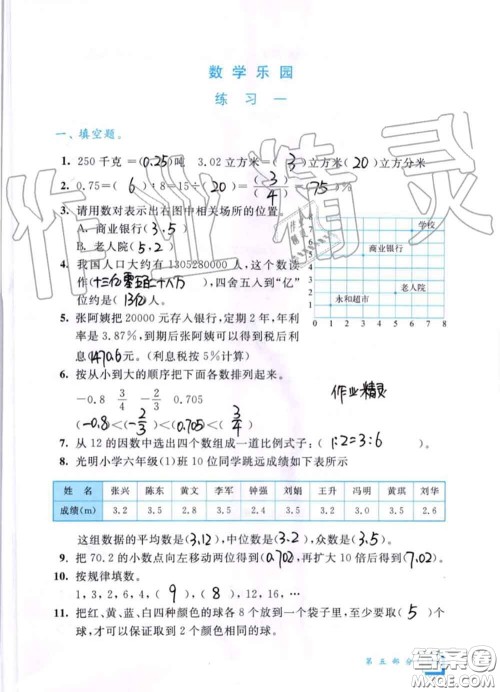 数学乐园
练习一
一、填空题。
1. 250千克=(0.25)吨 3.02立方米=(3)立方米(20)立方分米
2. 0.75=(6)÷8=15÷(20)=(3/4)=(75)%
3. 请用数对表示出右图中相关场所的位置。
A. 商业银行(3.5)
B. 老人院(5.2)
学校
商业银行
老人院
永和超市
0 1 2 3 4 5 6 7 8
4. 我国人口大约有1305280000人,这个数读
作( ),四舍五入到“亿”
位约是(13亿)人。
5. 张阿姨把20000元存入银行,定期2年,年利
率是3.87%,到期后张阿姨可以得到税后利
息(1470.6元。(利息税按5%计算)
6. 按从小到大的顺序把下面各数排列起来。
-0.8 3/4 -2/3 0.705
(-0.8)<(-2/3)<(0.705)<(3/4)
作业精灵
7. 从12的因数中选出四个数组成一道比例式子:(1:2=3:6)
8. 光明小学六年级(1)班10位同学跳远成绩如下表所示
姓名 张兴 陈东 黄文 李军 钟强 刘娟 王升 冯明 黄琪 刘华
成绩(m) 3.2 3.5 2.8 2.4 3.5 3.5 3.2 3.0 3.5 2.6
这组数据的平均数是(3.12),中位数是(3.2),众数是(3.5)。
9. 把70.2的小数点向左移动两位得到(0.702),再扩大10倍后得到(7.02)。
10. 按规律填数。
1,3,2,6,4,(9),(8),12,16,…
11. 把红、黄、蓝、白四种颜色的球各8个放到一个袋子里,至少要取(5)个
球,才可以保证取到2个颜色相同的球。
第五部分
作业精灵